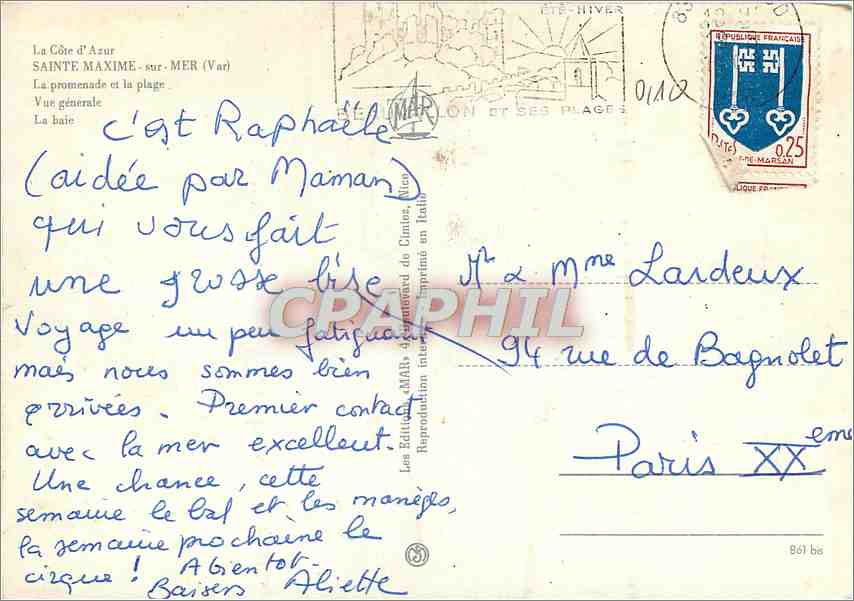 La Côte d'Azur
SAINTE MAXIME - sur - MER (Var)
La promenade et la plage
Vue générale
La baie
ÉTÉ-HIVER
ET SES PLAGES
0,10
RÉPUBLIQUE FRANÇAISE
POSTES
0,25
MARSAN
MAR
c'est Raphaële
(aidée par Maman)
qui vous fait
une grosse bise
Voyage un peu fatiguant
mais nous sommes bien
arrivées. Premier contact
avec la mer excellent.
Une chance, cette
semaine le bal et les manèges,
la semaine prochaine le
cirque! A bientôt.
Baisers Aliette
Les Editions «MAR» Boulevard de Cimiez, Nice
Reproduction interdite Imprimé en Italie
CPAPHIL
Mr & Mme Lardeux
94 rue de Bagnolet
Paris XXeme
861 bis